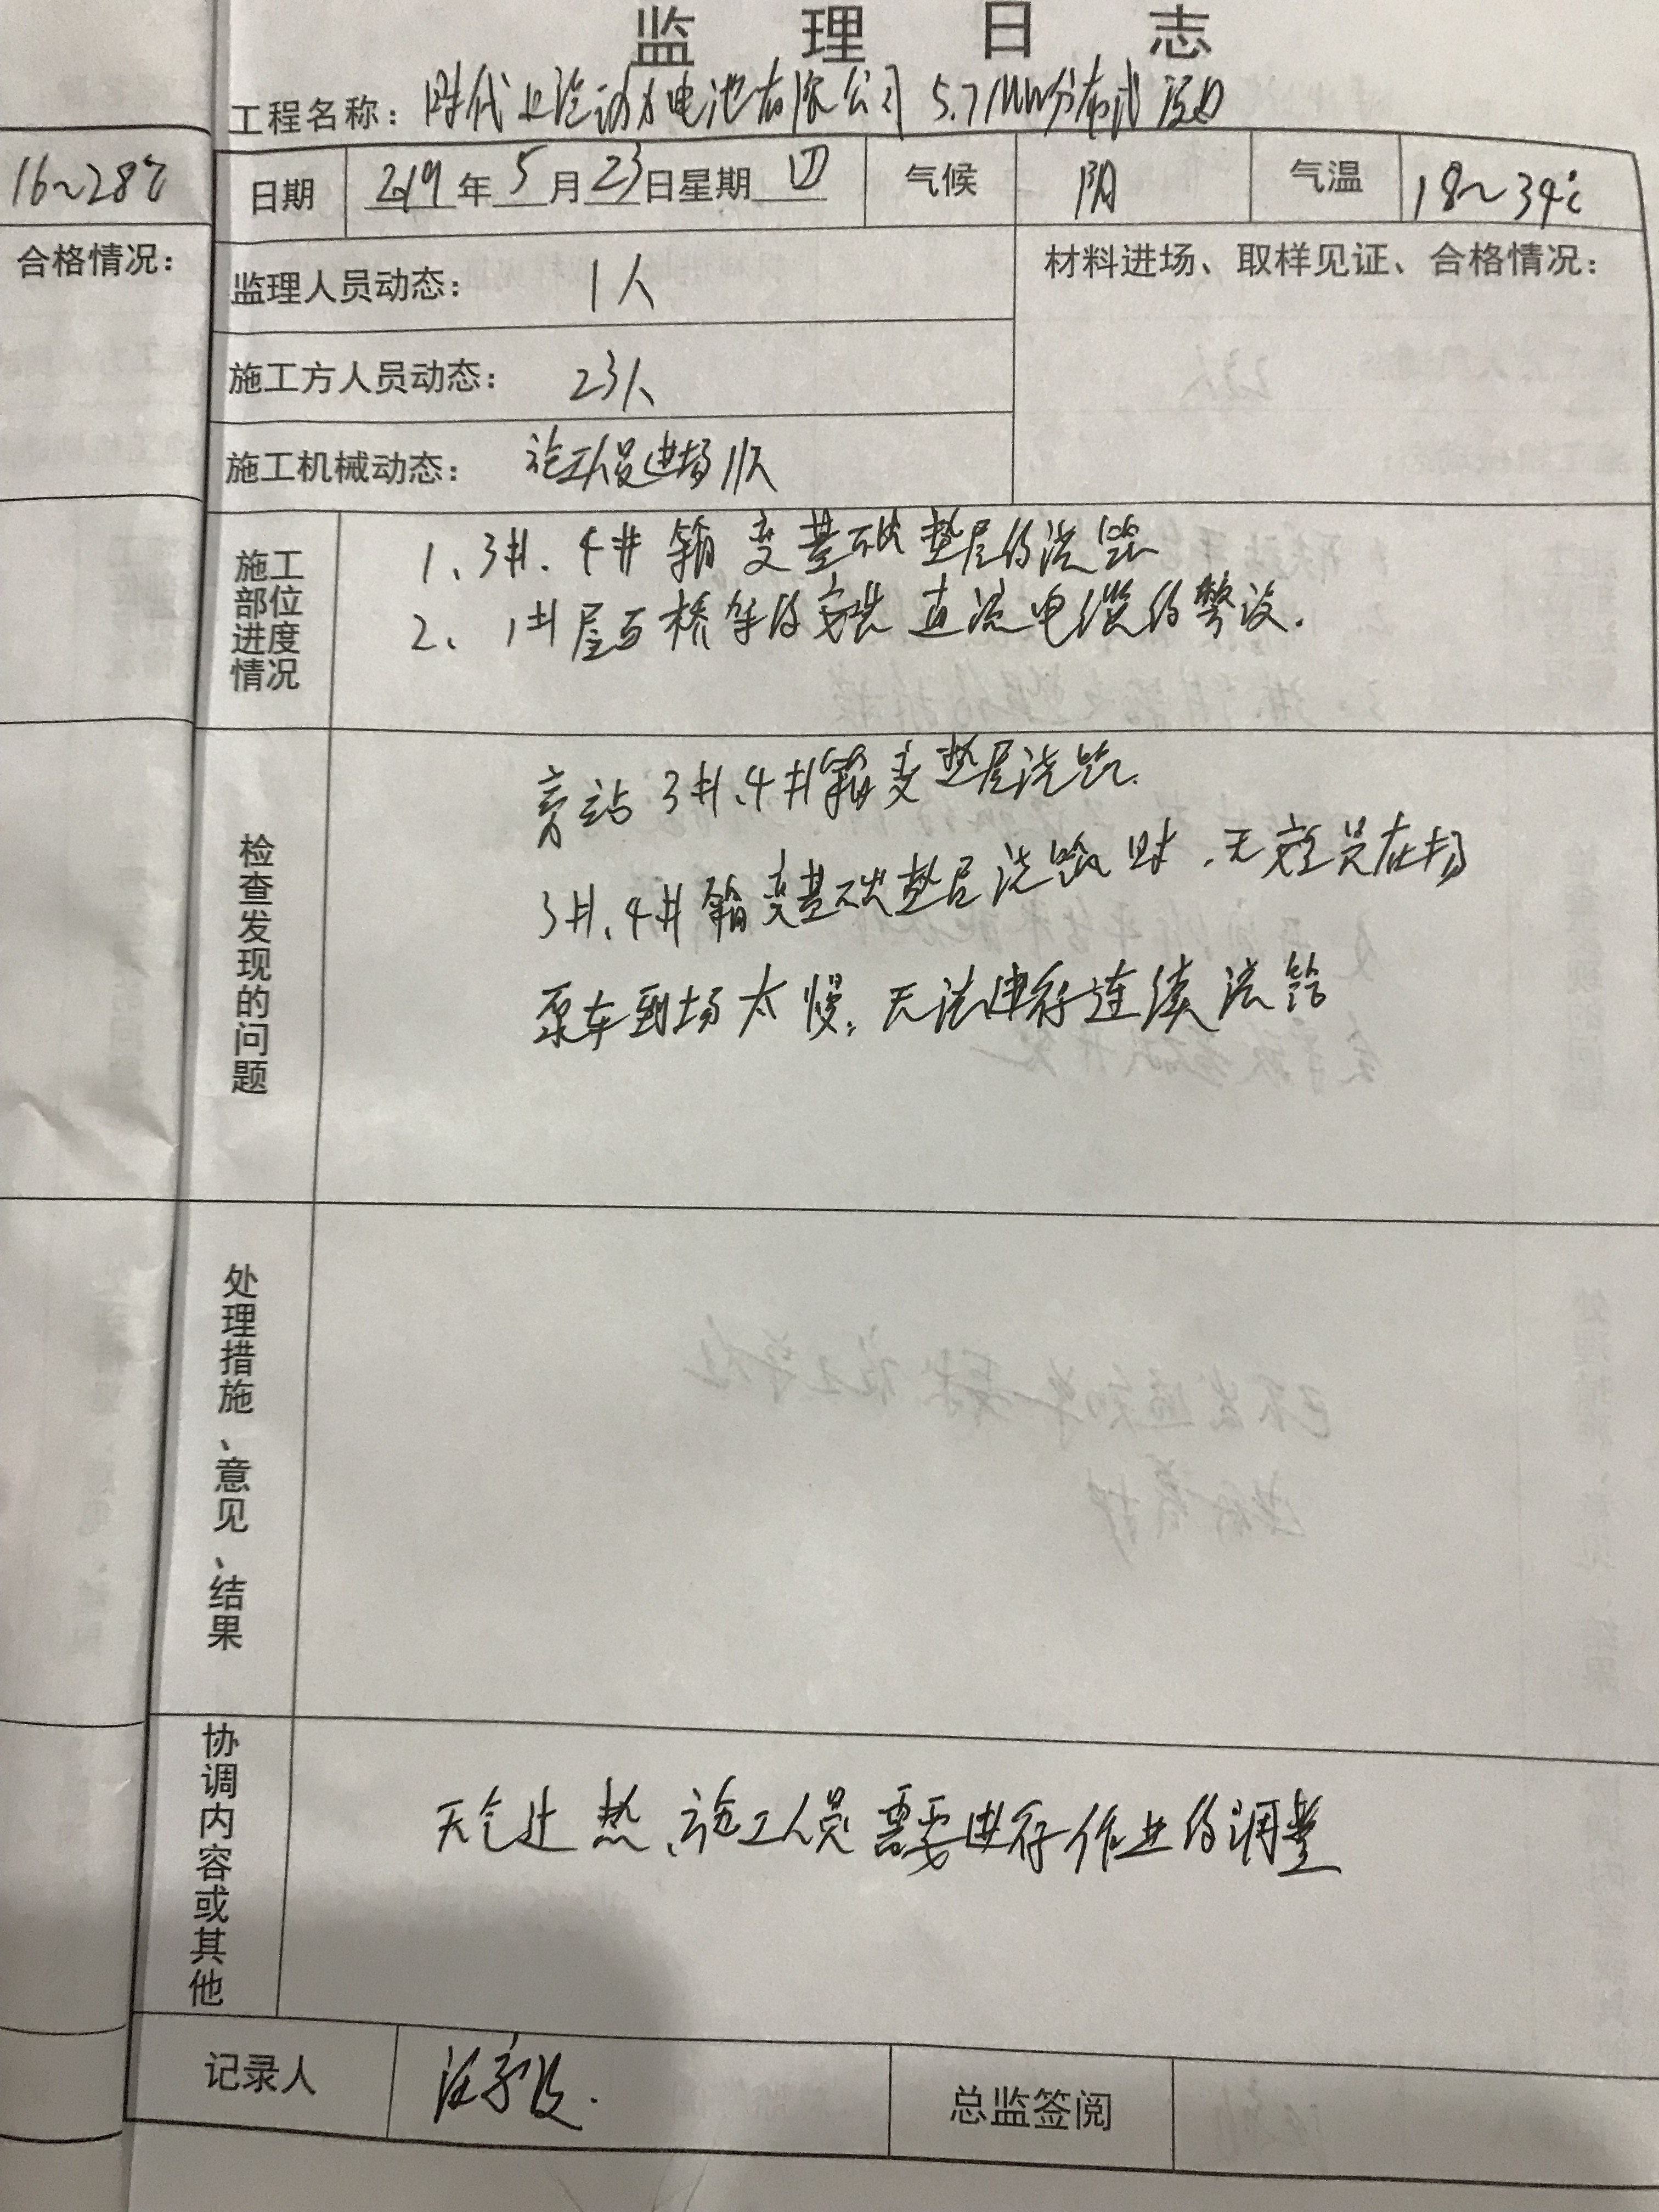 监理日志
工程名称：时代上汽动力电池有限公司5.7MW分布式项目
16~28℃
日期 2019年5月23日星期四 气候 阴 气温 18~34℃
合格情况：
监理人员动态： 1人
材料进场、取样见证、合格情况：
施工方人员动态： 23人
施工机械动态： 施工人员进场
施工部位进度情况
1、3#、4#箱变基础垫层的浇筑
2、1#屋面桥架的安装 直流电缆的敷设.
检查发现的问题
旁站3#、4#箱变垫层浇筑.
3#、4#箱变基础垫层浇筑时，无安全员在场
泵车到场太慢，无法进行连续浇筑
处理措施、意见、结果
协调内容或其他
天气过热、施工人员需要进行作业的调整
记录人
总监签阅